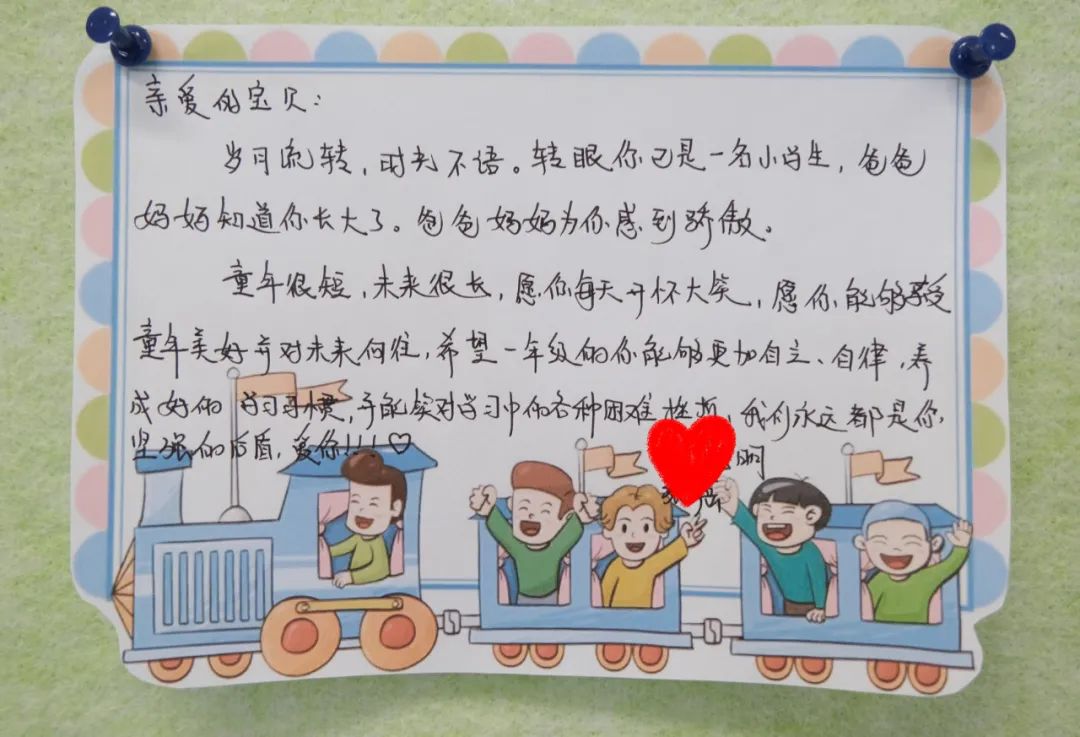 亲爱的宝贝：
岁月流转，时光不语。转眼你已是一名小学生，爸爸
妈妈知道你长大了。爸爸妈妈为你感到骄傲。
童年很短，未来很长，愿你每天开怀大笑，愿你能够享受
童年美好并对未来向往，希望一年级的你能够更加自主、自律，养
成好的学习习惯，并能实对学习中的各种困难挫折，我们永远都是你
坚强的后盾，爱你!!!♡